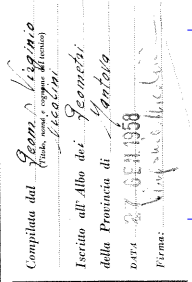 Compilata dal Geom. Virginio
(Titolo, nome e cognome del tecnico)
Iscritto all'Albo dei Geometri
della Provincia di Mantova
DATA 27 GEN 1958
Firma: